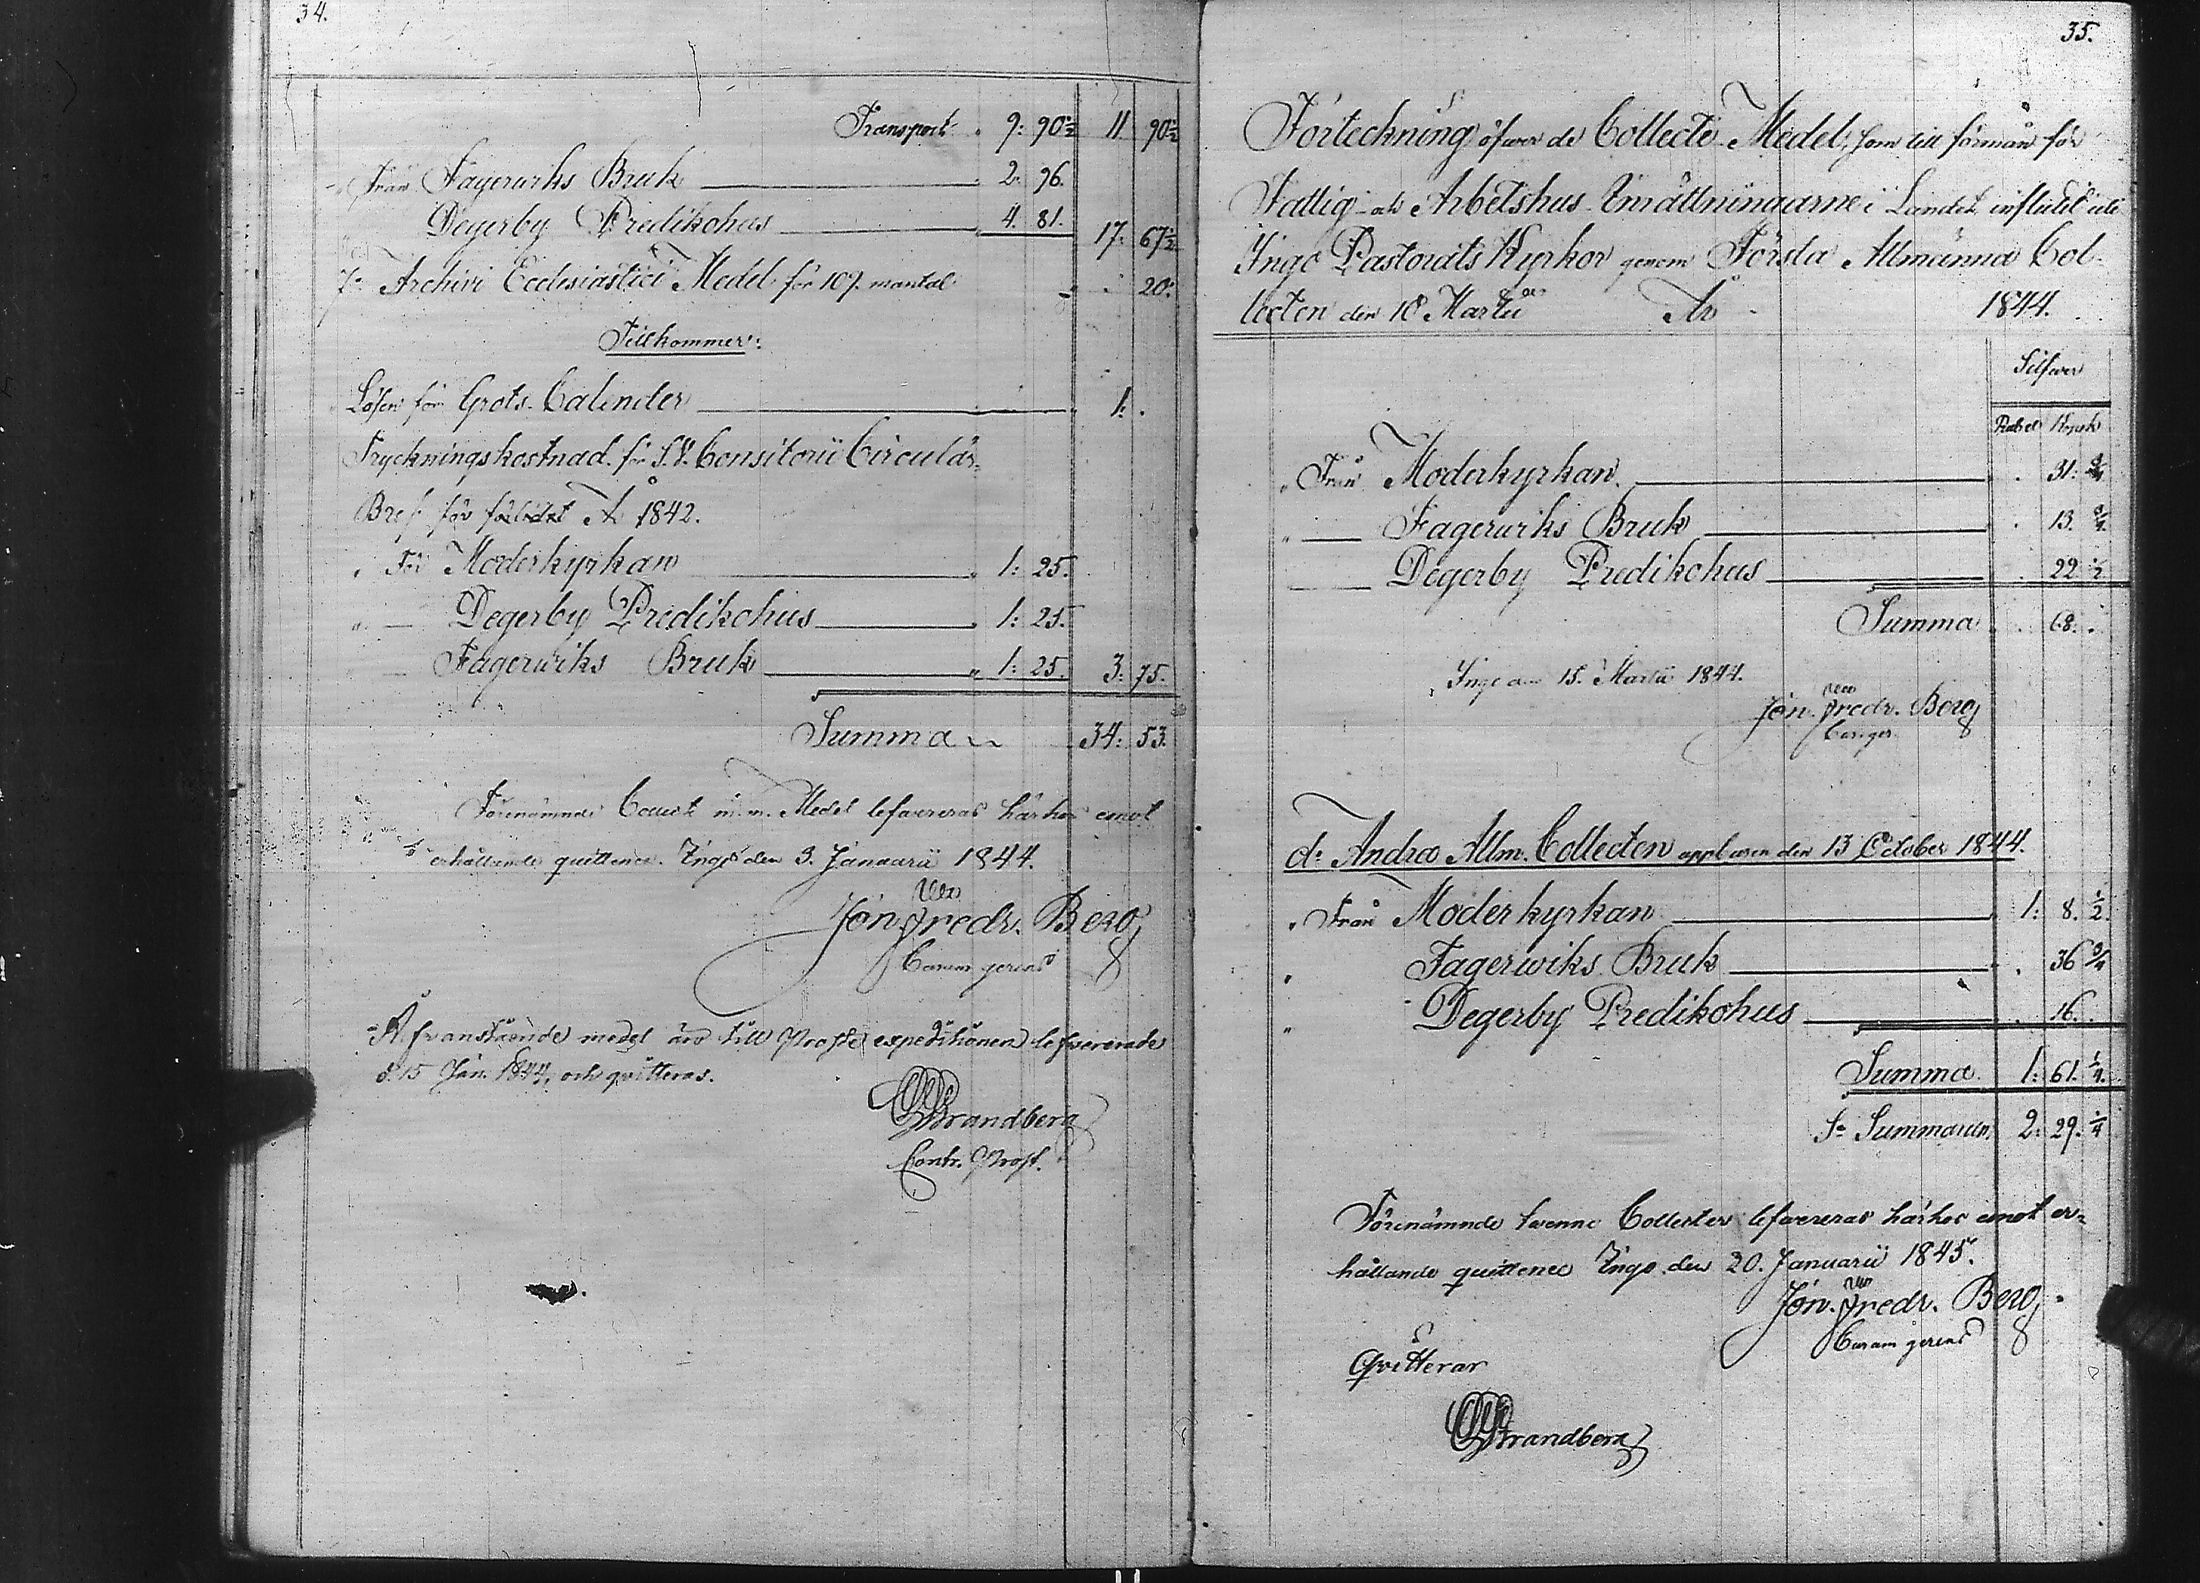 34.
Transport 9: 90½ 11. 90½
från Fagerwiks Bruk 2. 96.
Degerby Predikohus 4. 81. 17. 67½
7º Archivi Ecclesiastici Medel för 109. mantal 20.
Tillkommer:
Lösen för Calender 1:
Tryckningskostnad för Circulär-
Bref för förlidet År 1842.
För Moderkyrkan 1: 25.
Degerby Predikohus 1: 25.
Fagerwiks Bruk 1: 25. 3: 75.
Summa 34: 53.
Förenämnde m.m. Medel lefwereras härhos emot
erhållande quittence. Ingo den 3. Januarii 1844.
Jön Fredr. Berg
Curam gerens
Åfvanstående medel äro till Prosts expeditionen lefvererade
d. 15 Jan. 1844, och qvitteras.
Strandberg
Contr. Prost.
35.
Förteckning öfwer de Collecte-Medel, som till förmån för
Fattig- och Arbetshus-Inrättningarne i Landet influtit uti
Ingo Pastorats Kyrkor genom Första Allmänna Col-
lecten den 10 Martii År 1844.
Silfwer
Rubel Kopek
Från Moderkyrkan 31. ¾
Fagerwiks Bruk 13. ¾
Degerby Predikohus 22 ½
Summa 68.
Ingo den 15. Martii 1844.
Jön. Fredr. Berg
Cur. ger.
dº Andra Allm. Collecten uppburen den 13 October 1844.
Från Moderkyrkan 1: 8. ½
Fagerwiks Bruk 36 ¾
Degerby Predikohus 16.
Summa 1: 61. ¼
Sª Summarum 2: 29. ¼
Förenämnde twenne Collecter lefwereras härhos emot er-
hållande quittence Ingo den 20. Januarii 1845.
Jön. Fredr. Berg
Curam gerens
Qvitterar
Strandberg